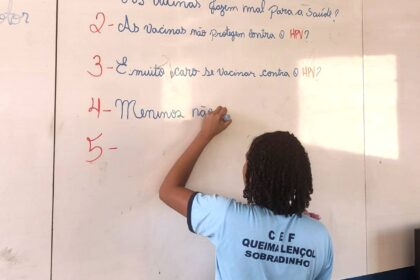 otor
As vacinas fazem mal para a saúde?
2- As vacinas não protegem contra o HPV?
3- É muito caro se vacinar contra o HPV?
4- Meninos não
5-
C E F
QUEIMA LENÇOL
SOBRADINHO